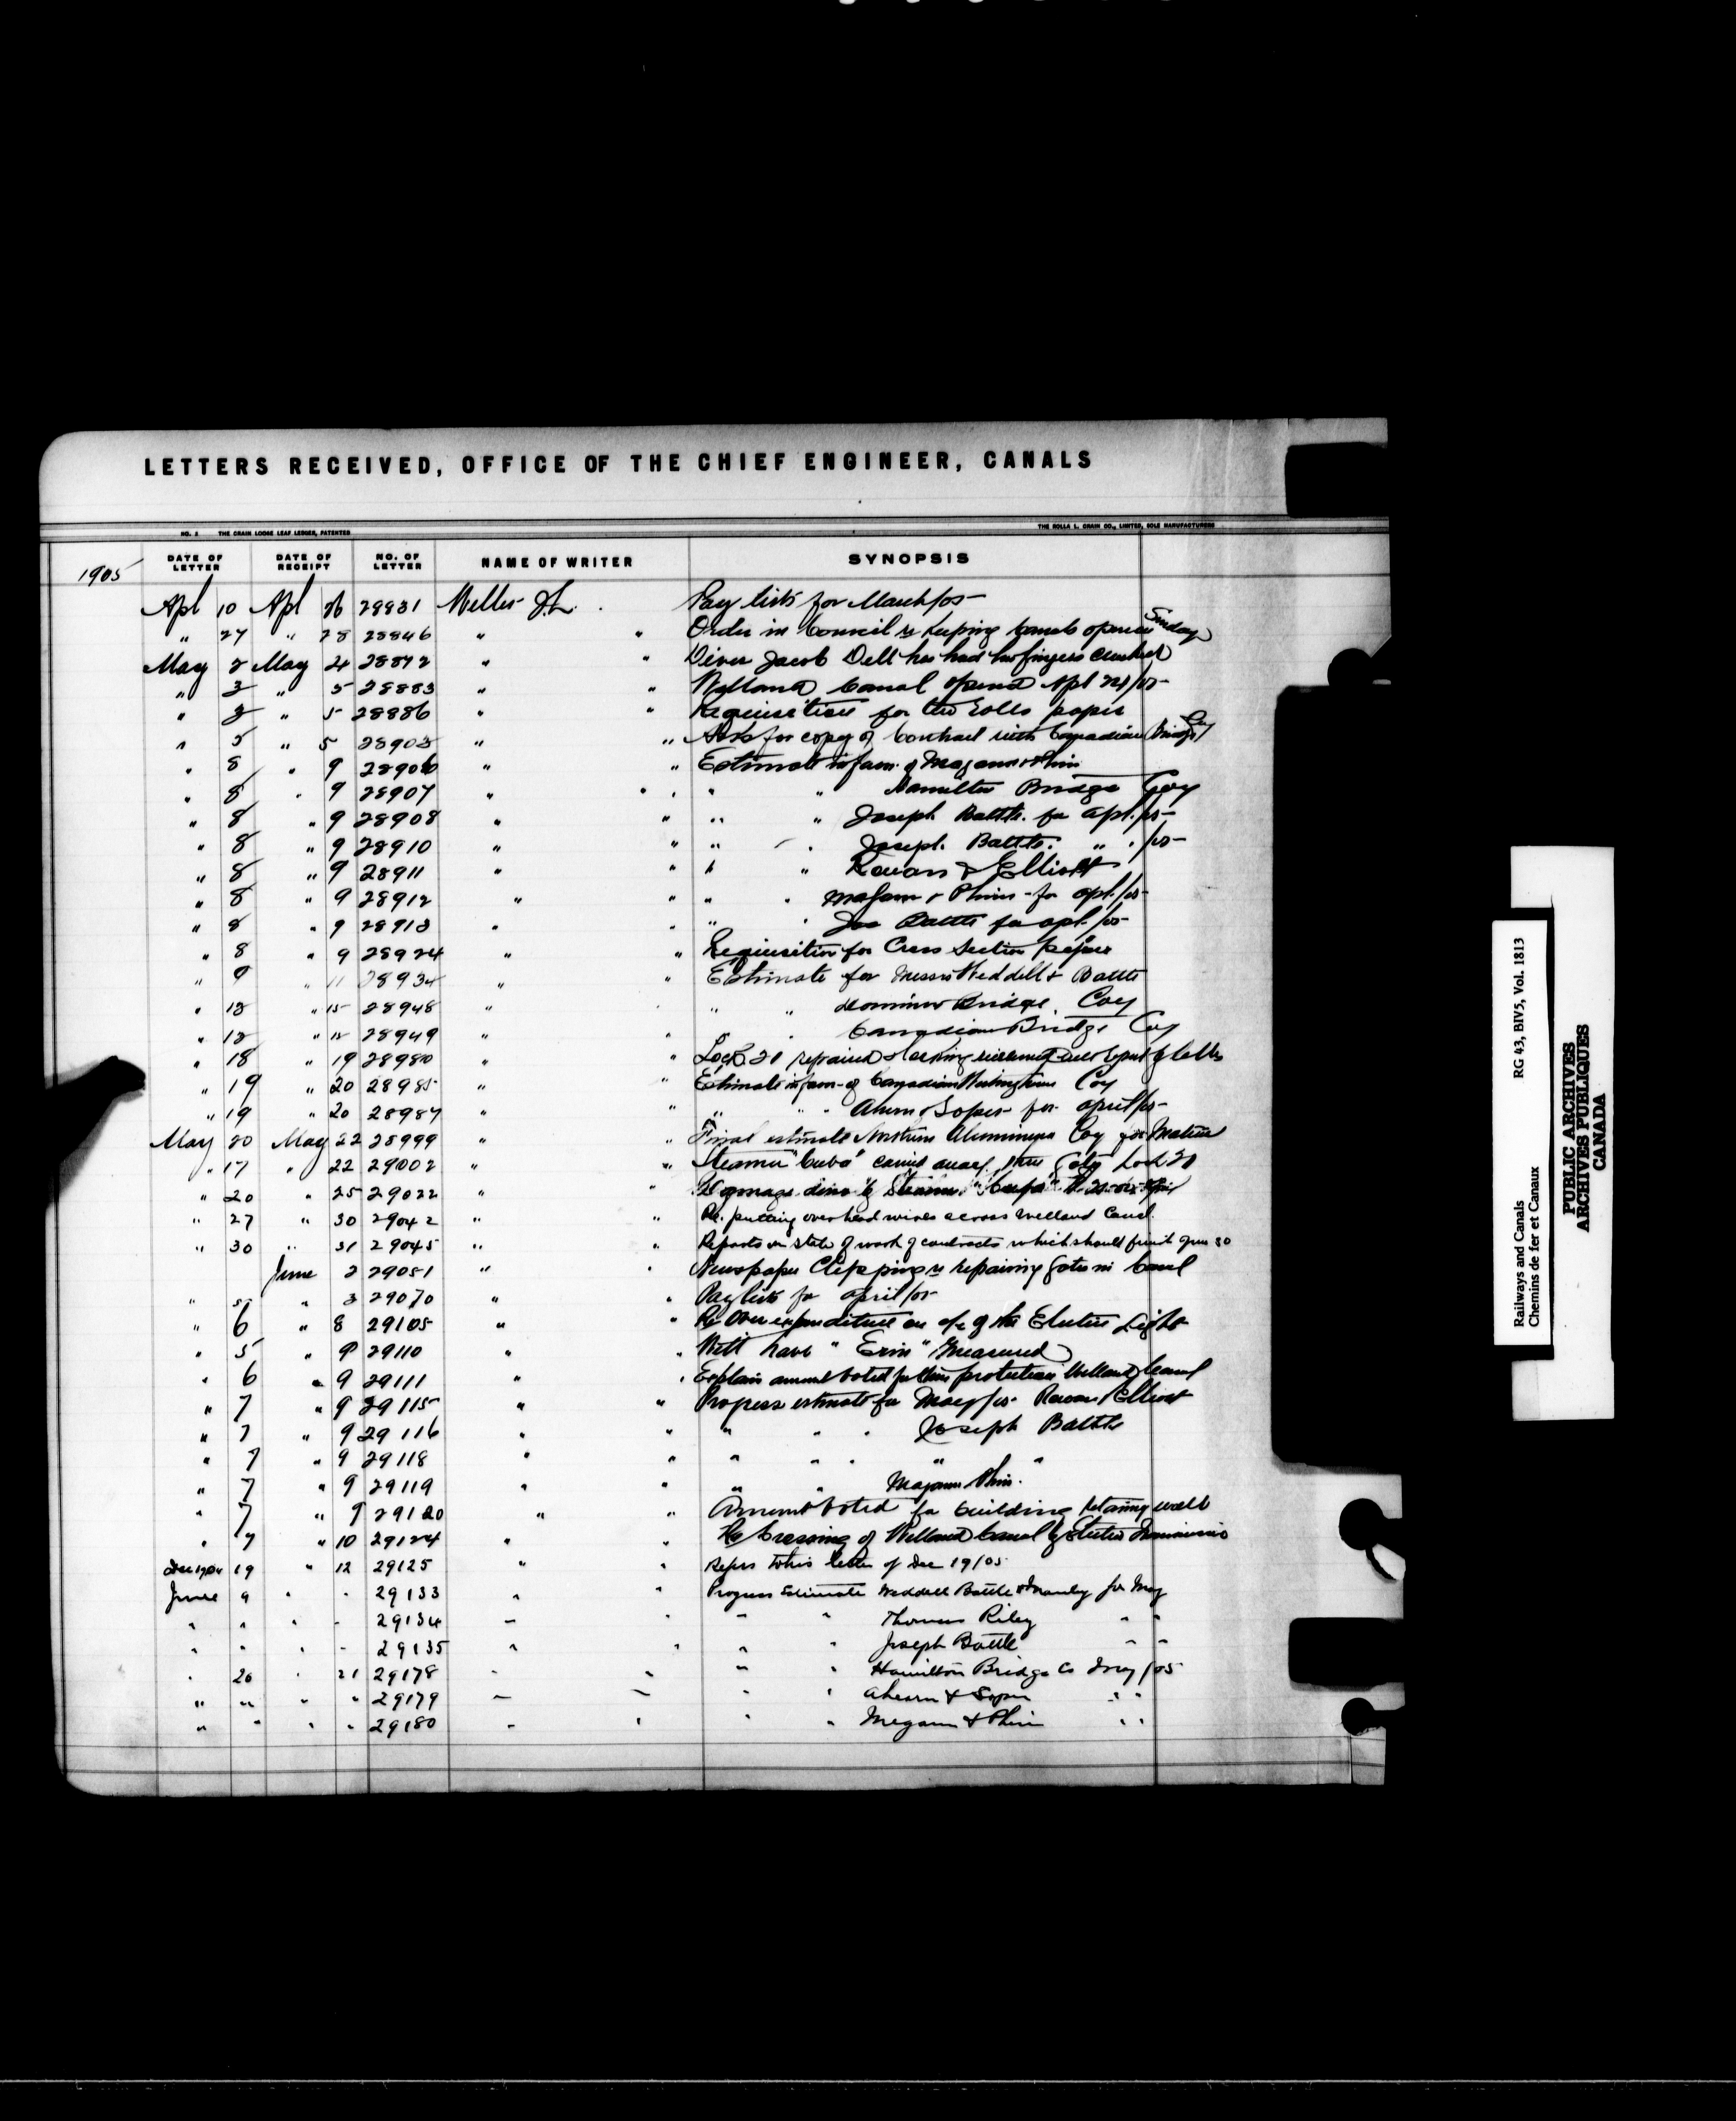 LETTERS RECEIVED, OFFICE OF THE CHIEF ENGINEER, CANALS
NO. 2 THE CRAIN LOOSE LEAF LEDGER, PATENTED THE ROLLA L. CRAIN CO., LIMITED, SOLE MANUFACTURERS
1905 DATE OF LETTER DATE OF RECEIPT NO. OF LETTER NAME OF WRITER SYNOPSIS
Apl 10 Apl 26 28831 Weller J.L. Pay lists for March/05
" 27 " 28 28846 " " Order in Council re Keeping Canals open on Sunday
May 2 May 4 28872 " " Diver Jacob Dell has had his fingers crushed
" 3 " 5 28883 " " Welland Canal opened Apl 24/05
" 3 " 5 28886 " " Requisition for two rolls paper
" 5 " 5 28903 " " Asks for copy of Contract with Canadian Bridge Coy
" 8 " 9 28906 " " Estimate in favor of Magann & Phin
" 8 " 9 28907 " " " " Hamilton Bridge Coy
" 8 " 9 28908 " " " " Joseph Battle for Apl./05
" 8 " 9 28910 " " " " Joseph Battle " " /05
" 8 " 9 28911 " " " " Rowan & Elliott
" 8 " 9 28912 " " " " Magann & Phin for apl./05
" 8 " 9 28913 " " " " Jos Battle for apl. /05
" 8 " 9 28924 " " Requisition for Cross Section paper
" 9 " 11 28934 " " Estimate for Messrs Weddell & Battle
" 13 " 15 28948 " " " " Dominion Bridge Coy
" 13 " 15 28949 " " " " Canadian Bridge Coy
" 18 " 19 28980 " " Lock 21 repaired
" 19 " 20 28985 " " Estimate in favor of Canadian Westinghouse Coy
" 19 " 20 28987 " " " " Ahearn & Soper for april/05
May 20 May 22 28999 " " Final estimate Northern Aluminum Coy for Material
" 17 " 22 29002 " " Steamer "Cuba" carried away three Gates Lock 21
" 20 " 25 29022 " " Damage done by Steamer
" 27 " 30 29042 " " Re. putting overhead wires across Welland Canal.
" 30 " 31 29045 " " Reports on state of work of contracts which should finish June 30
June 2 29051 " " Newspaper Clipping re repairing Gates in Canal
" 5 " 3 29070 " " Pay lists for April/05
" 6 " 8 29105 " " Re Over expenditure on a/c of the Electric Light
" 5 " 9 29110 " " Will have "Erin" Measured
" 6 " 9 29111 " " Explain amount voted for protection Welland Canal
" 7 " 9 29115 " " Progress estimate for May/05 Rowan & Elliott
" 7 " 9 29116 " " " " " Joseph Battle
" 7 " 9 29118 " " " " " " "
" 7 " 9 29119 " " " " Magann Phin.
" 7 " 9 29120 " " Amount voted for building retaining wall
" 7 " 10 29124 " " Re Crossing of Welland Canal by Electric Transmission
Dec 1904 19 " 12 29125 " " Refers to his letter of Dec 19/05
June 9 " " 29133 " " Progress Estimate Weddell Battle & Manly for May
" " " " 29134 " " " " Thomas Riley " "
" " " " 29135 " " " " Joseph Battle " "
" 20 " 21 29178 " " " " Hamilton Bridge Co May/05
" " " " 29179 " " " " Ahearn & Soper " "
" " " " 29180 " " " " Magann & Phin " "
Railways and Canals RG 43, BIV5, Vol. 1813
Chemins de fer et Canaux
PUBLIC ARCHIVES
ARCHIVES PUBLIQUES
CANADA